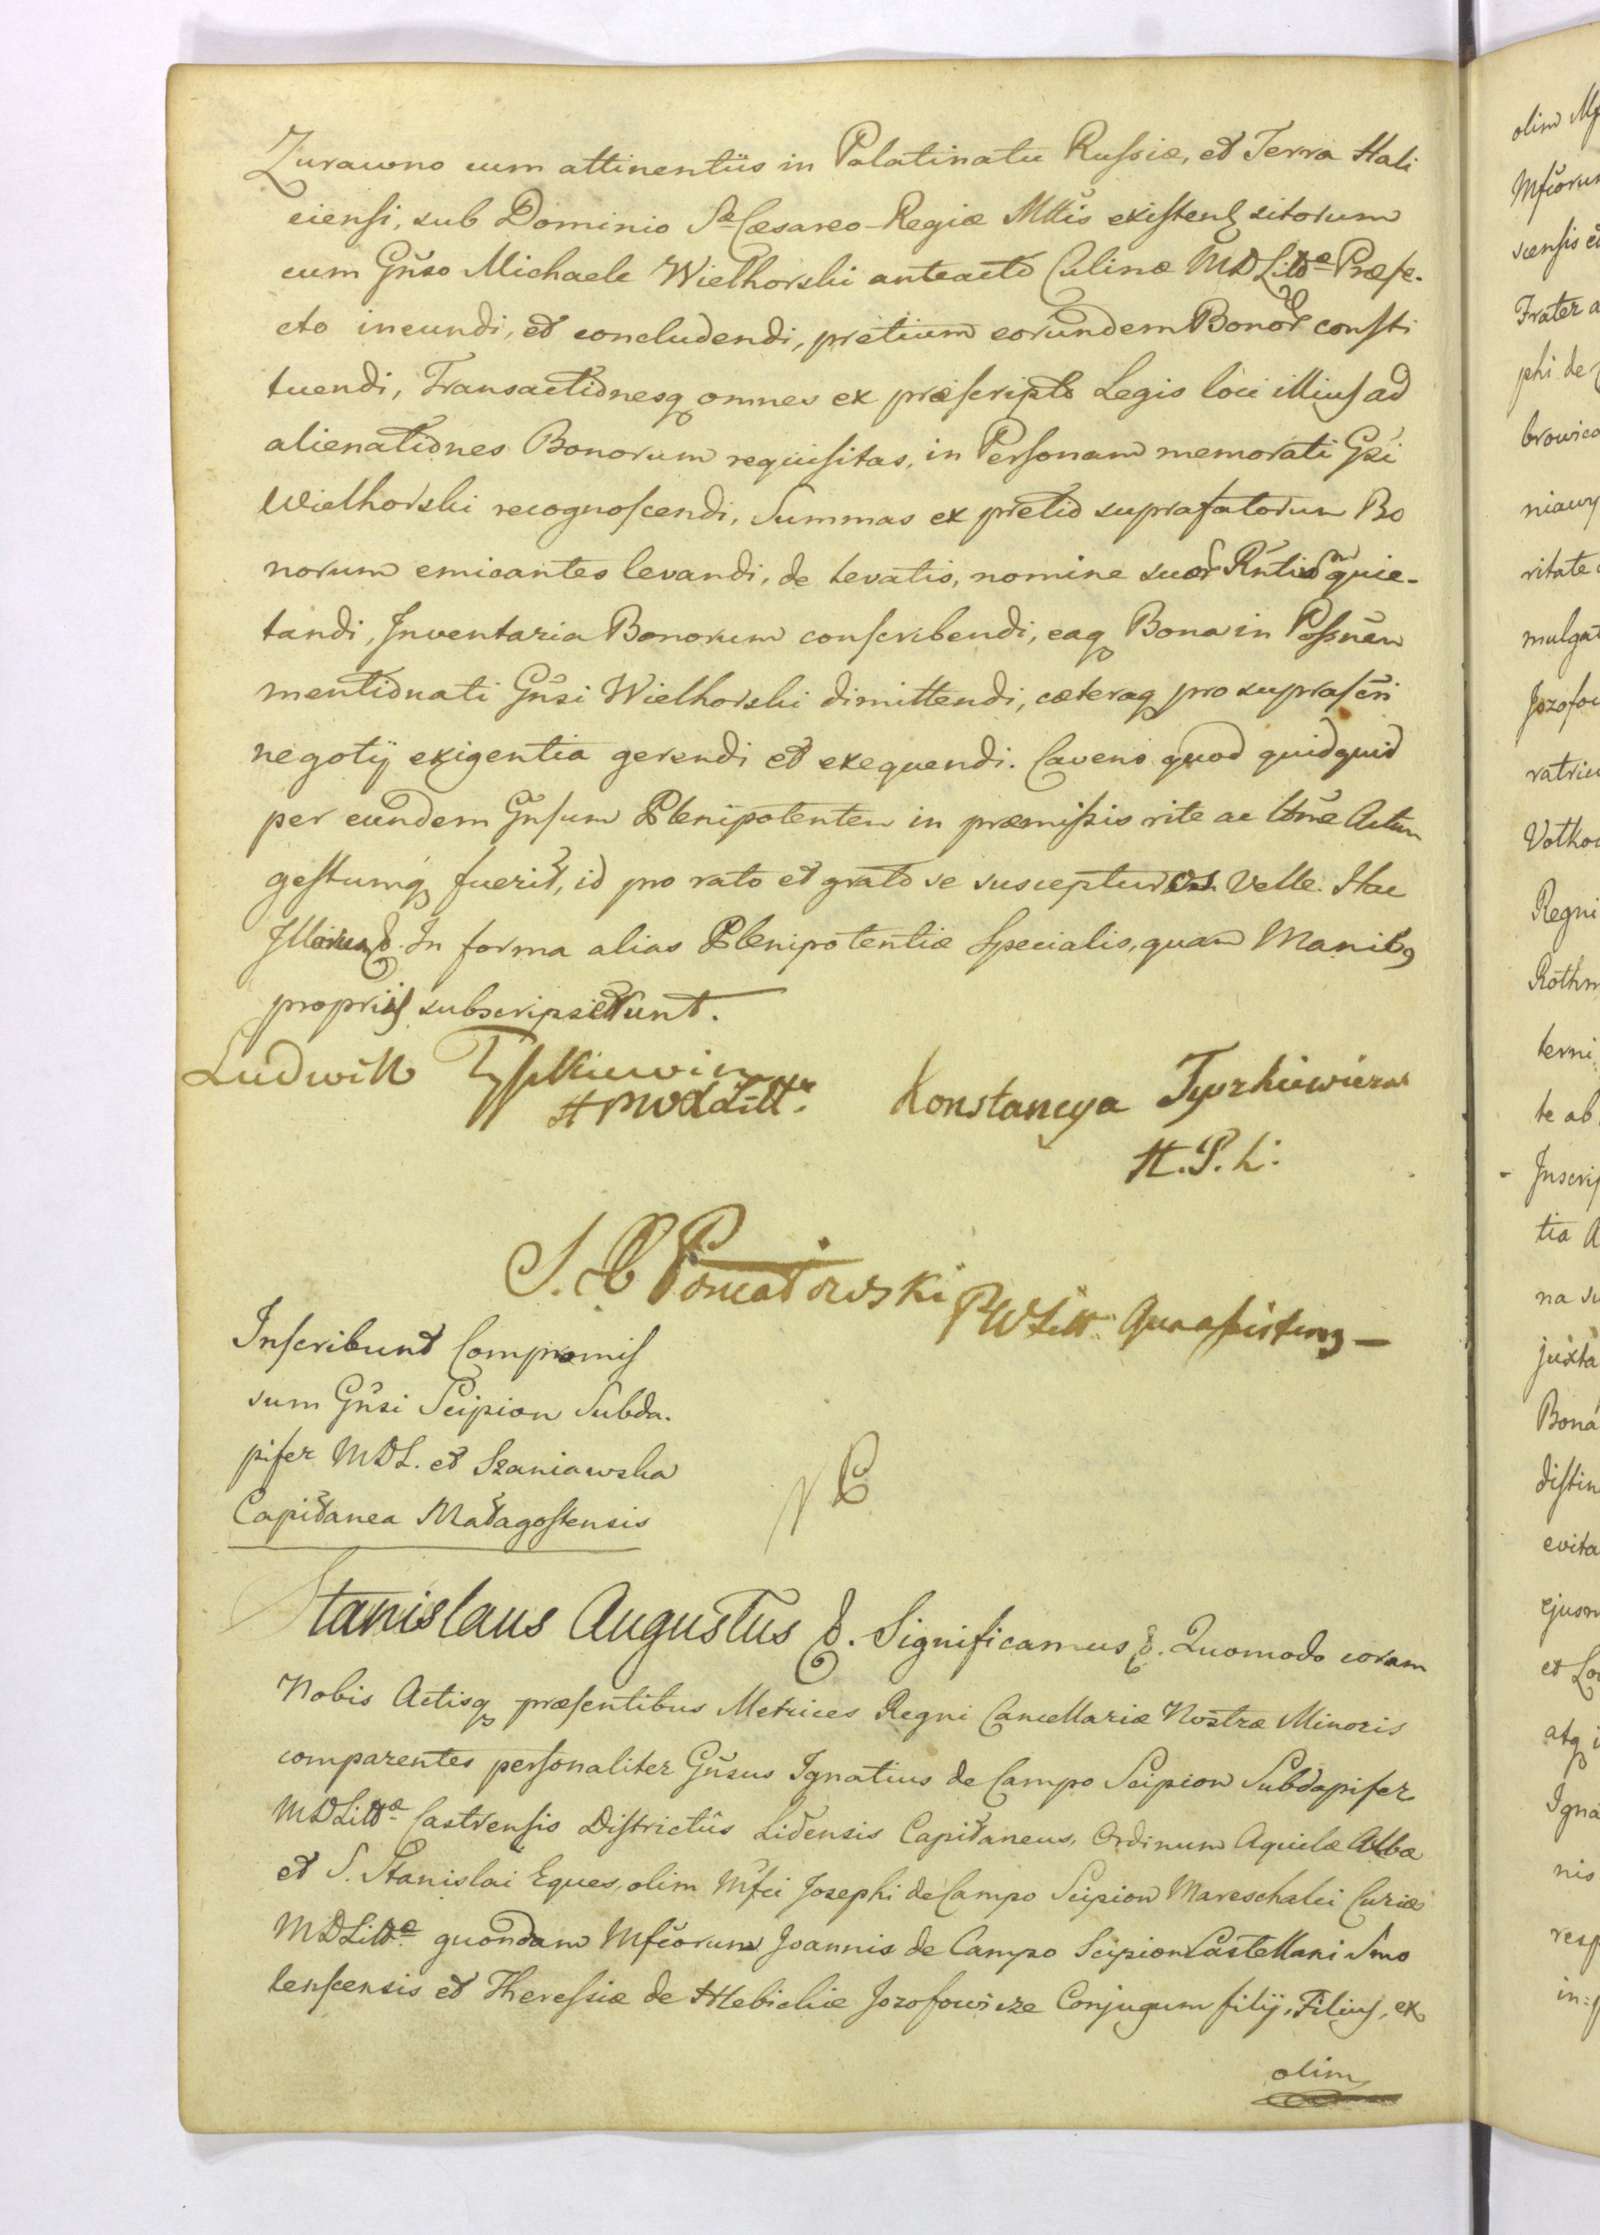 Zurawno cum attinentiis in Palatinatu Russiæ, et Terra Hali
ciensi, sub Dominio Sæ Cæsareo-Regiæ Mttis existen sitorum
cum Gñso Michaele Wielhorski anteacto Culinæ MDLittæ Præfe-
cto ineundi, et concludendi, pretium eorundem Bonor consti
tuendi, Transactionesq omnes ex præscripto Legis loci illius ad
alienationes Bonorum requisitas, in Personam memorati Gñsi
Wielhorski recognoscendi, Summas ex pretio suprafatorum Bo
norum emicantes levandi, de levatis, nomine suor quie-
tandi, Inventaria Bonorum conscribendi, eaq Bona in Possñem
mentionati Gñsi Wielhorski dimittendi, cæteraq pro suprascri
negotij exigentia gerendi et exequendi. Cavens quod quidquid
per eundem Gñsum Plenipotentem in præmissis rite ac Actum
gestumq fuerit, id pro rato et grato se suscepturos velle. Hac
In forma alias Plenipotentiæ Specialis, quam Manibq
propriis subscripserunt.
Ludwik Tyszkiewicz
H P W X Litt.
Konstancya Tyszkiewiczowa
H. P. L.
S. C Poniatowski PWLitt. qua assistens
Inscribunt Compromis
sum Gñsi Scipion Subda.
pifer MDL. et Szaniawska
Capitanea Małagostensis
Stanislaus Augustus &. Significamus &. Quomodo coram
Nobis Actisq præsentibus Metrices Regni Cancellariæ Nostræ Minoris
comparentes personaliter Gñsus Ignatius de Campo Scipion Subdapifer
MDLittæ Castrensis Districtûs Lidensis Capitaneus, Ordinum Aquilæ Albæ
et S. Stanislai Eques, olim Mfci Josephi de Campo Scipion Mareschalci Curiæ
MDLittæ quondam Mfcorum Joannis de Campo Scipion Castellani Smo
lenscensis et Theressiæ de Hlebickie Jozofowicze Conjugum filij, Filius, ex
olim
olim
sitis
Frater
phi de
ritate
Regni
te ab
tia
na
juxta
Bona
evita
nis